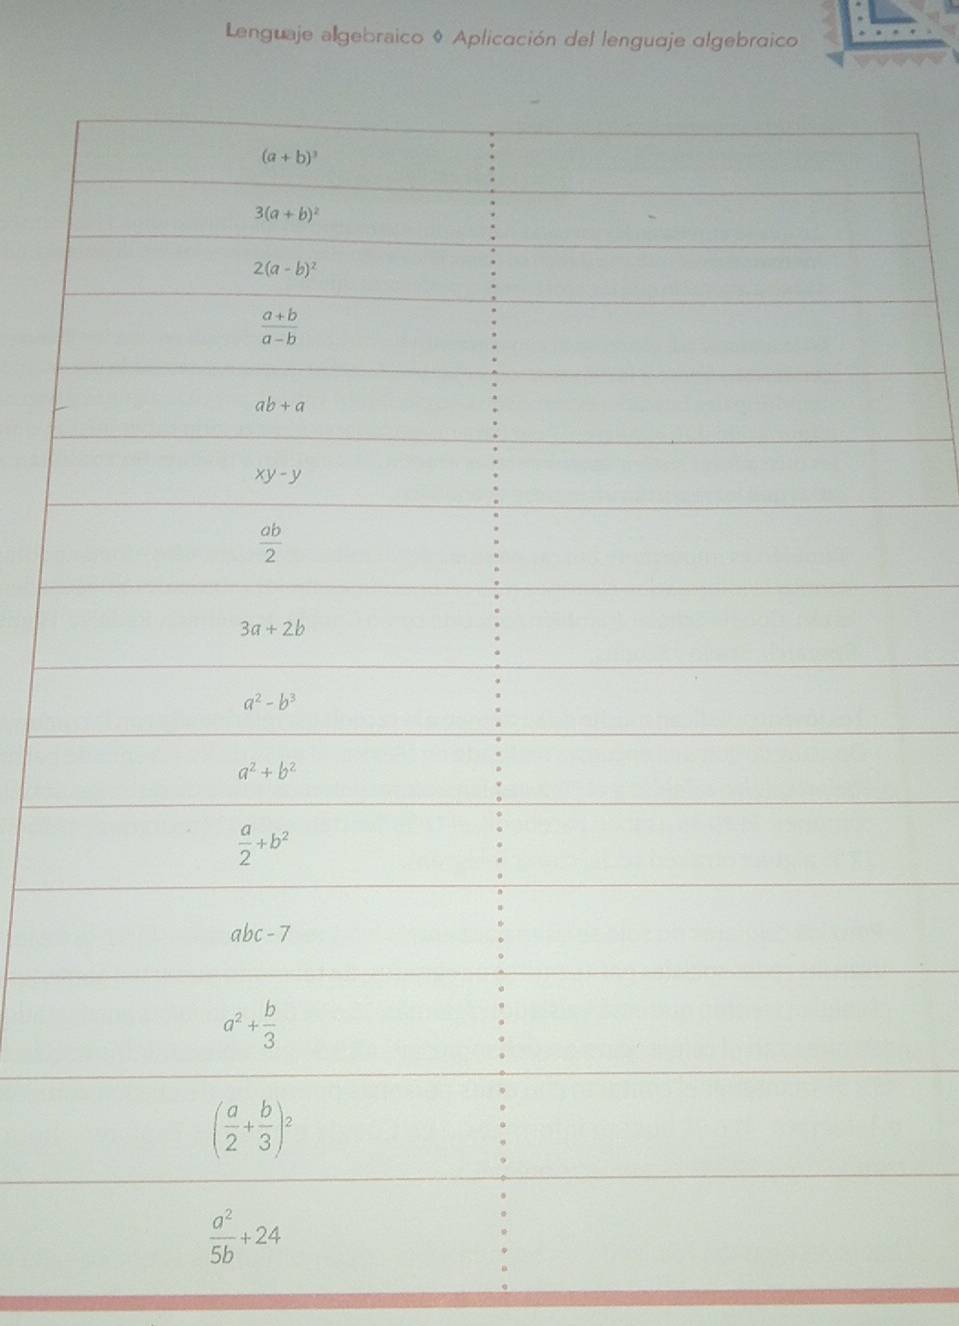 Lenguaje algebraico ◊ Aplicación del lenguaje algebraico
(a + b)³
3(a + b)²
2(a - b)²
a + b
a - b
ab + a
xy - y
ab
2
3a + 2b
a² - b³
a² + b²
a/2 + b²
abc - 7
a² + b/3
(a/2 + b/3)²
a²/5b + 24